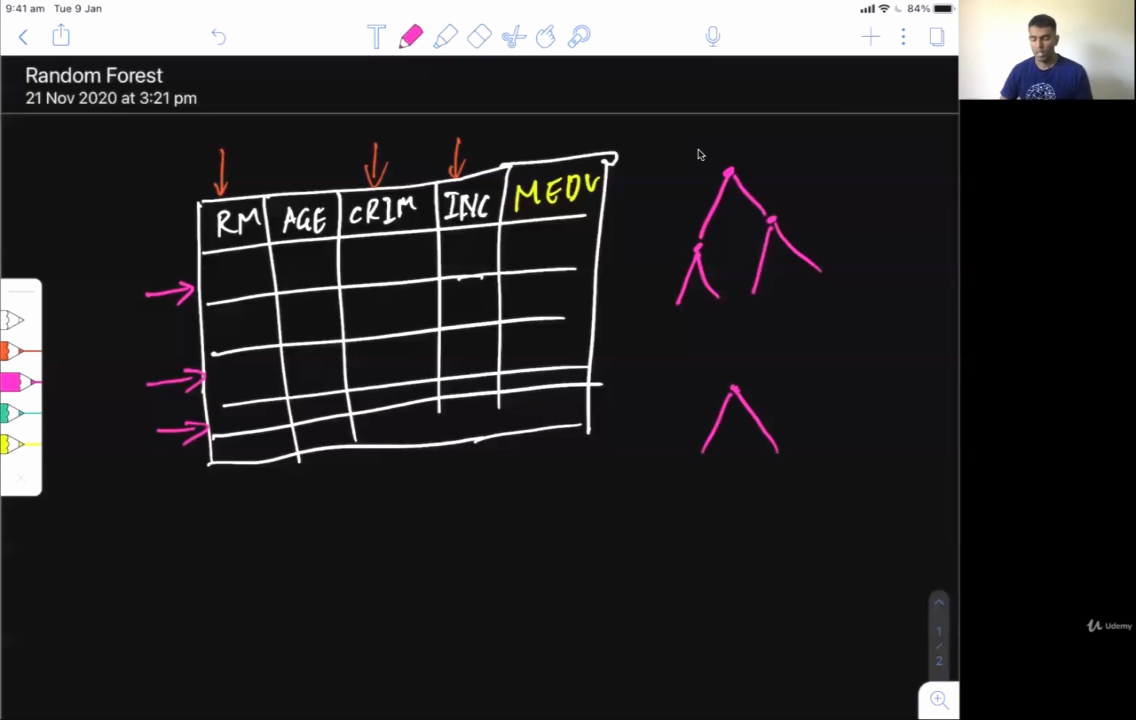 9:41 am Tue 9 Jan
84%
T
Random Forest
21 Nov 2020 at 3:21 pm
RM AGE CRIM INC MEDV
1
/
2
Udemy